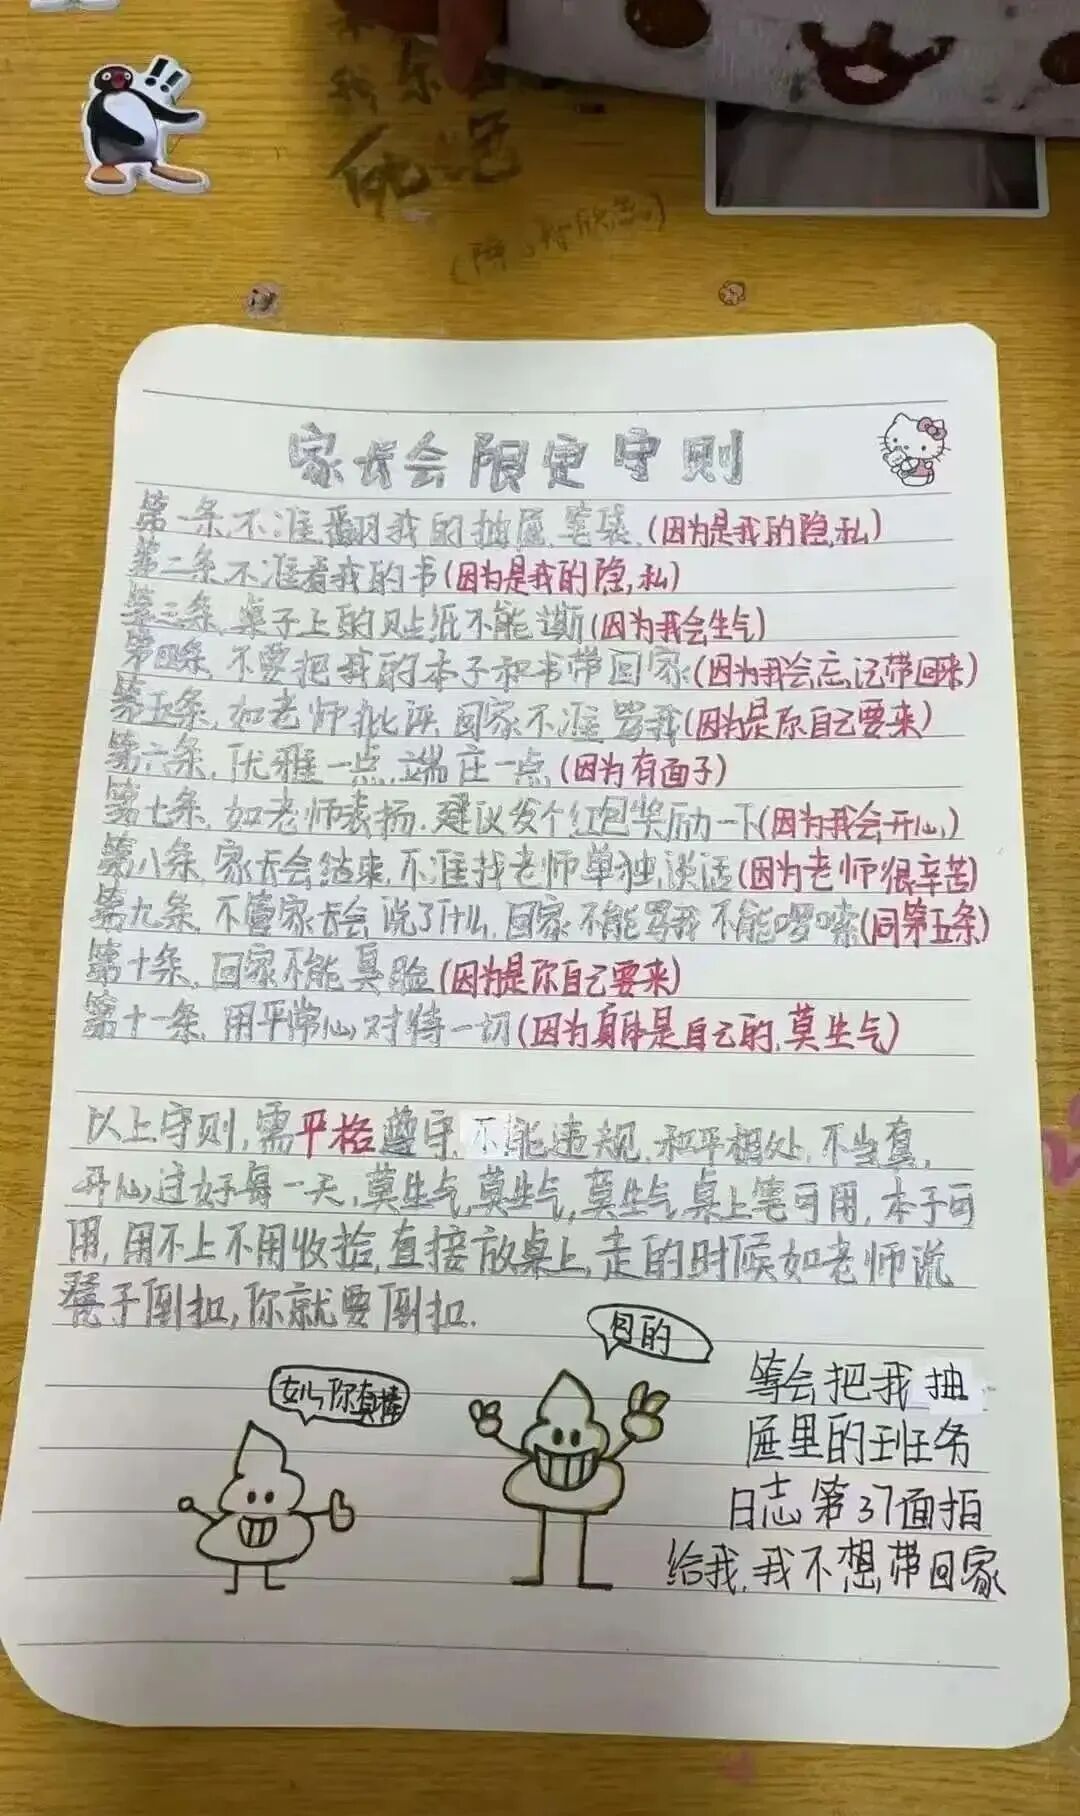 家长会限定守则
第一条,不准翻我的抽屉,笔袋,(因为是我的隐私)
第二条,不准看我的书(因为是我的隐私)
第三条,桌子上的贴纸不能撕(因为我会生气)
第四条,不要把我的本子和书带回家(因为我会忘记带回来)
第五条,如老师批评,回家不准骂我(因为是你自己要来)
第六条,优雅一点,端庄一点(因为有面子)
第七条,如老师表扬,建议发个红包奖励一下(因为我会开心)
第八条,家长会结束,不准找老师单独谈话(因为老师很辛苦)
第九条,不管家长会说了什么,回家不能骂我不能啰嗦(同第五条)
第十条,回家不能臭脸(因为是你自己要来)
第十一条,用平常心对待一切(因为身体是自己的,莫生气)
以上守则,需平格遵守,不能违规,和平相处,不当真,
开心过好每一天,莫生气,莫生气,莫生气,桌上笔可用,本子可
用,用不上不用收拾,直接放桌上,走的时候如老师说
凳子倒扣,你就要倒扣.
女儿你真棒
目的
等会把我抽
屉里的班务
日志第37面拍
给我,我不想带回家